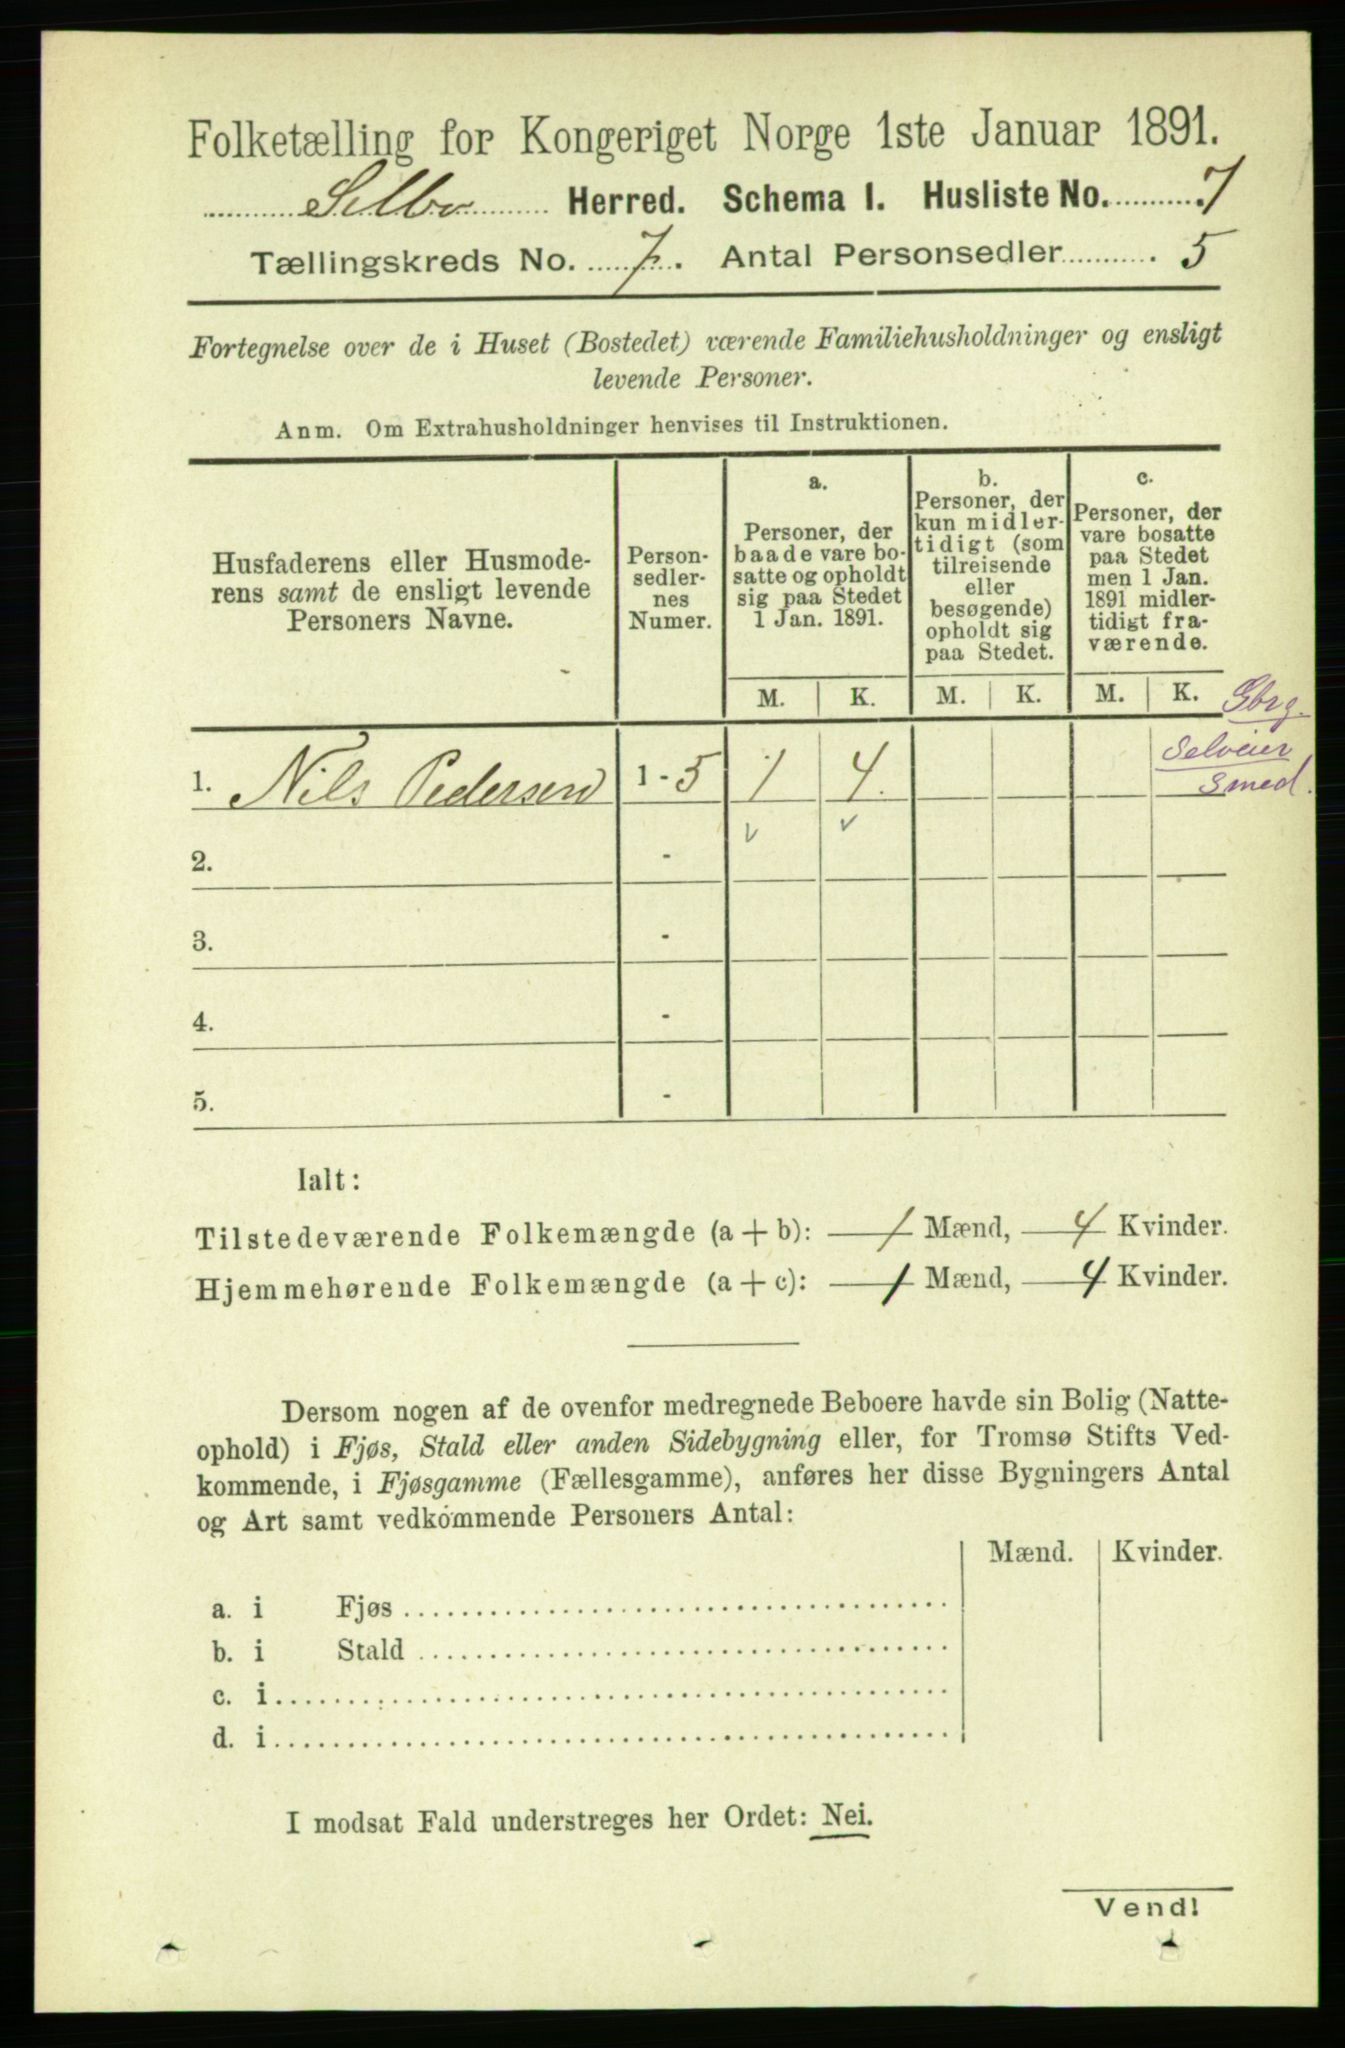 Folketælling for Kongeriget Norge 1ste Januar 1891.
Selbu Herred. Schema I. Husliste No. 7
Tællingskreds No. 7. Antal Personsedler 5
Fortegnelse over de i Huset (Bostedet) værende Familiehusholdninger og ensligt
levende Personer.
Anm. Om Extrahusholdninger henvises til Instruktionen.
Husfaderens eller Husmode-
rens samt de ensligt levende
Personers Navne.
Person-
sedler-
nes
Numer.
a.
Personer, der
baade vare bo-
satte og opholdt
sig paa Stedet
1 Jan. 1891.
b.
Personer, der
kun midler-
tidigt (som
tilreisende
eller
besøgende)
opholdt sig
paa Stedet.
c.
Personer, der
vare bosatte
paa Stedet
men 1 Jan.
1891 midler-
tidigt fra-
værende.
M. K. M. K. M. K.
Gbrg.
Selveier
Smed.
1. Nils Pedersen 1 - 5 1 4.
2. -
3. -
4. -
5. -
Ialt:
Tilstedeværende Folkemængde (a + b): 1 Mænd, 4 Kvinder.
Hjemmehørende Folkemængde (a + c): 1 Mænd, 4 Kvinder.
Dersom nogen af de ovenfor medregnede Beboere havde sin Bolig (Natte-
ophold) i Fjøs, Stald eller anden Sidebygning eller, for Tromsø Stifts Ved-
kommende, i Fjøsgamme (Fællesgamme), anføres her disse Bygningers Antal
og Art samt vedkommende Personers Antal:
Mænd. Kvinder.
a. i Fjøs
b. i Stald
c. i
d. i
I modsat Fald understreges her Ordet: Nei.
Vend!